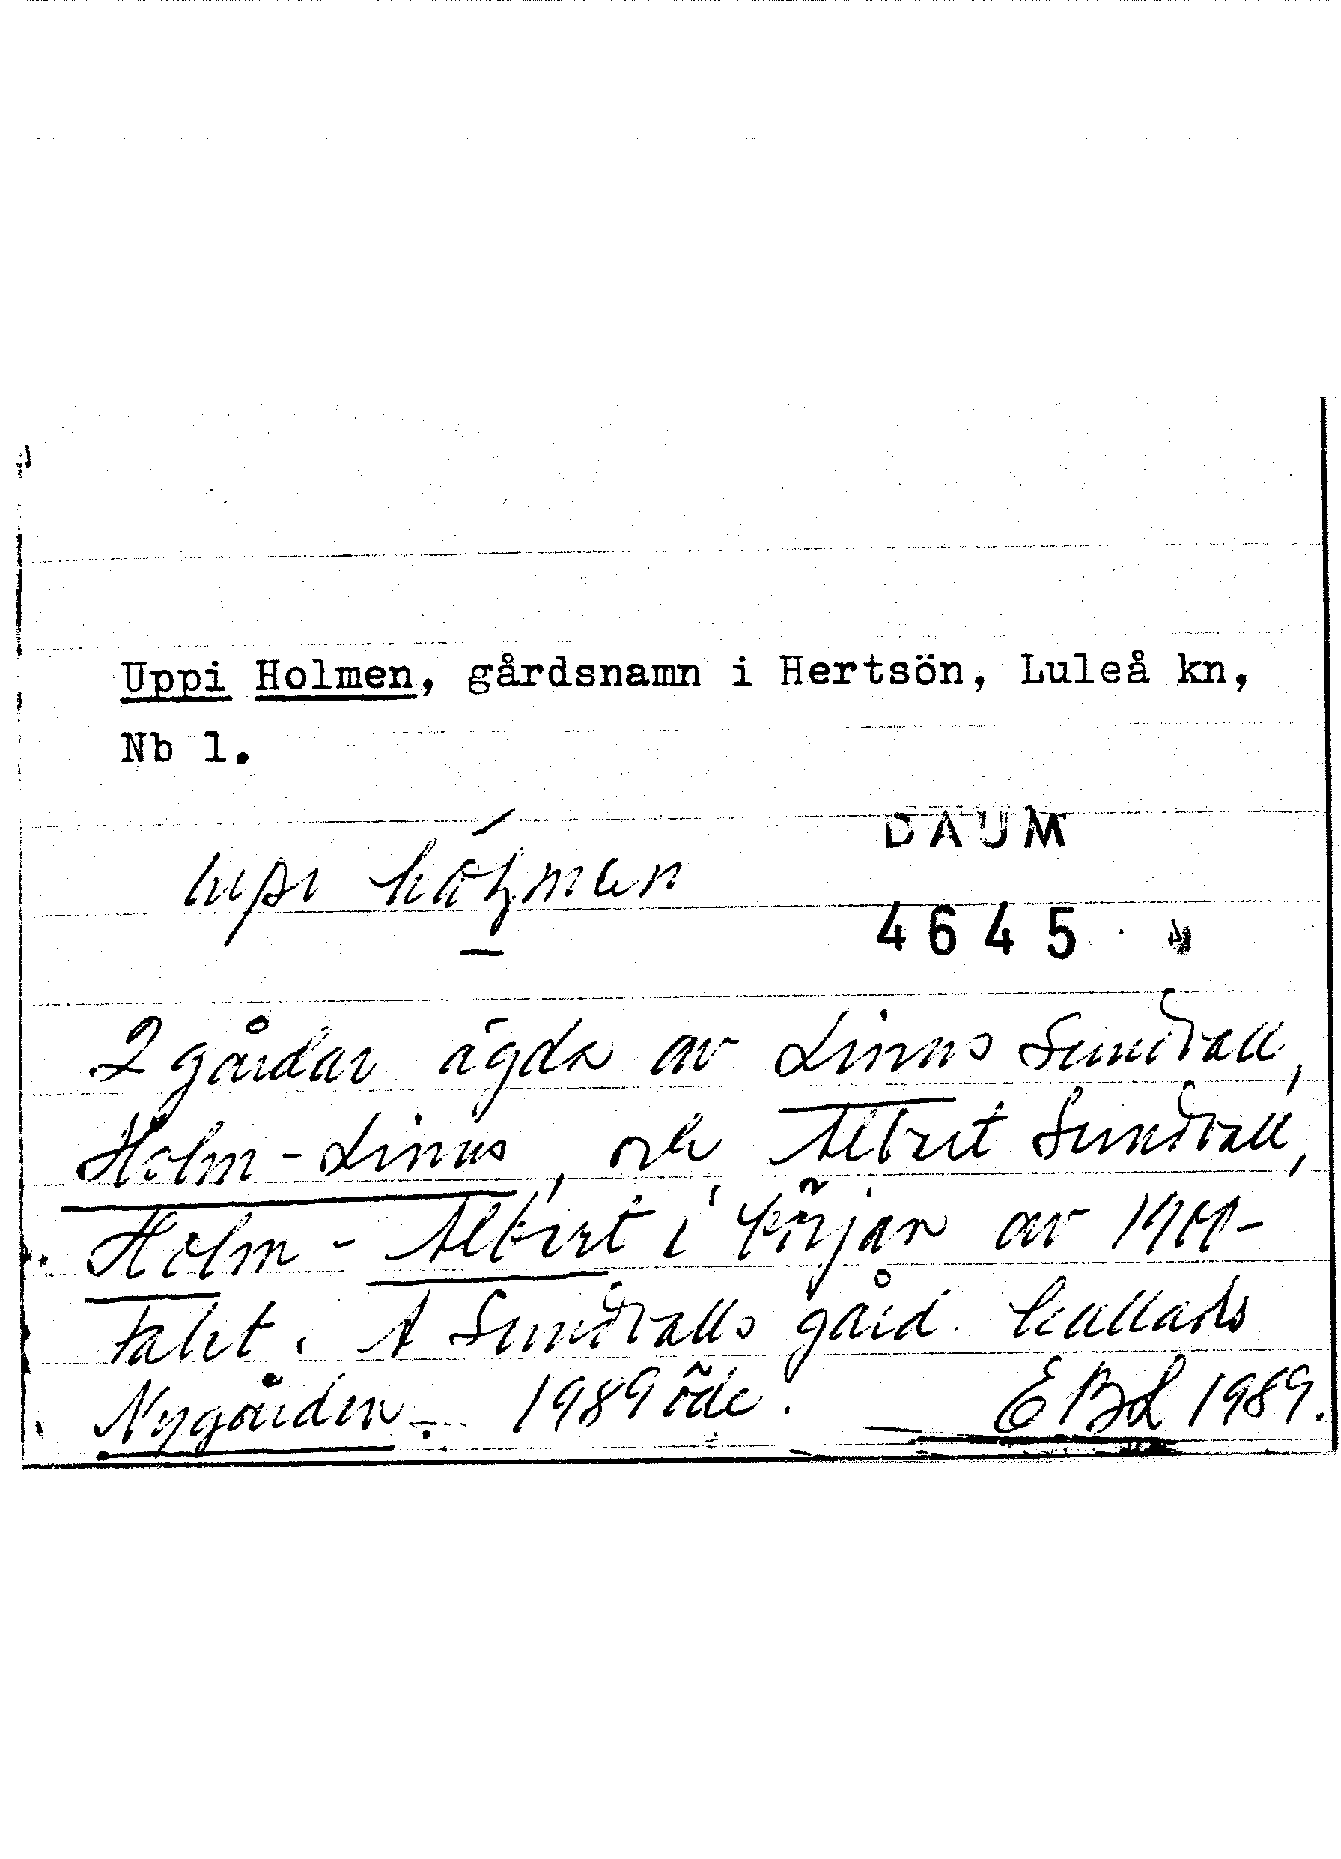 Uppi Holmen, gårdsnamn i Hertsön, Luleå kn,
Nb 1.
DAUM
uppi
4645
2 gårdar ägda av Linus Sundvall,
Holm-Linus, och Albert Sundvall,
Holm-Albert i början av 1900-
talet. A Sundvalls gård kallads
Nygården. 1989 öde. EBL 1989.